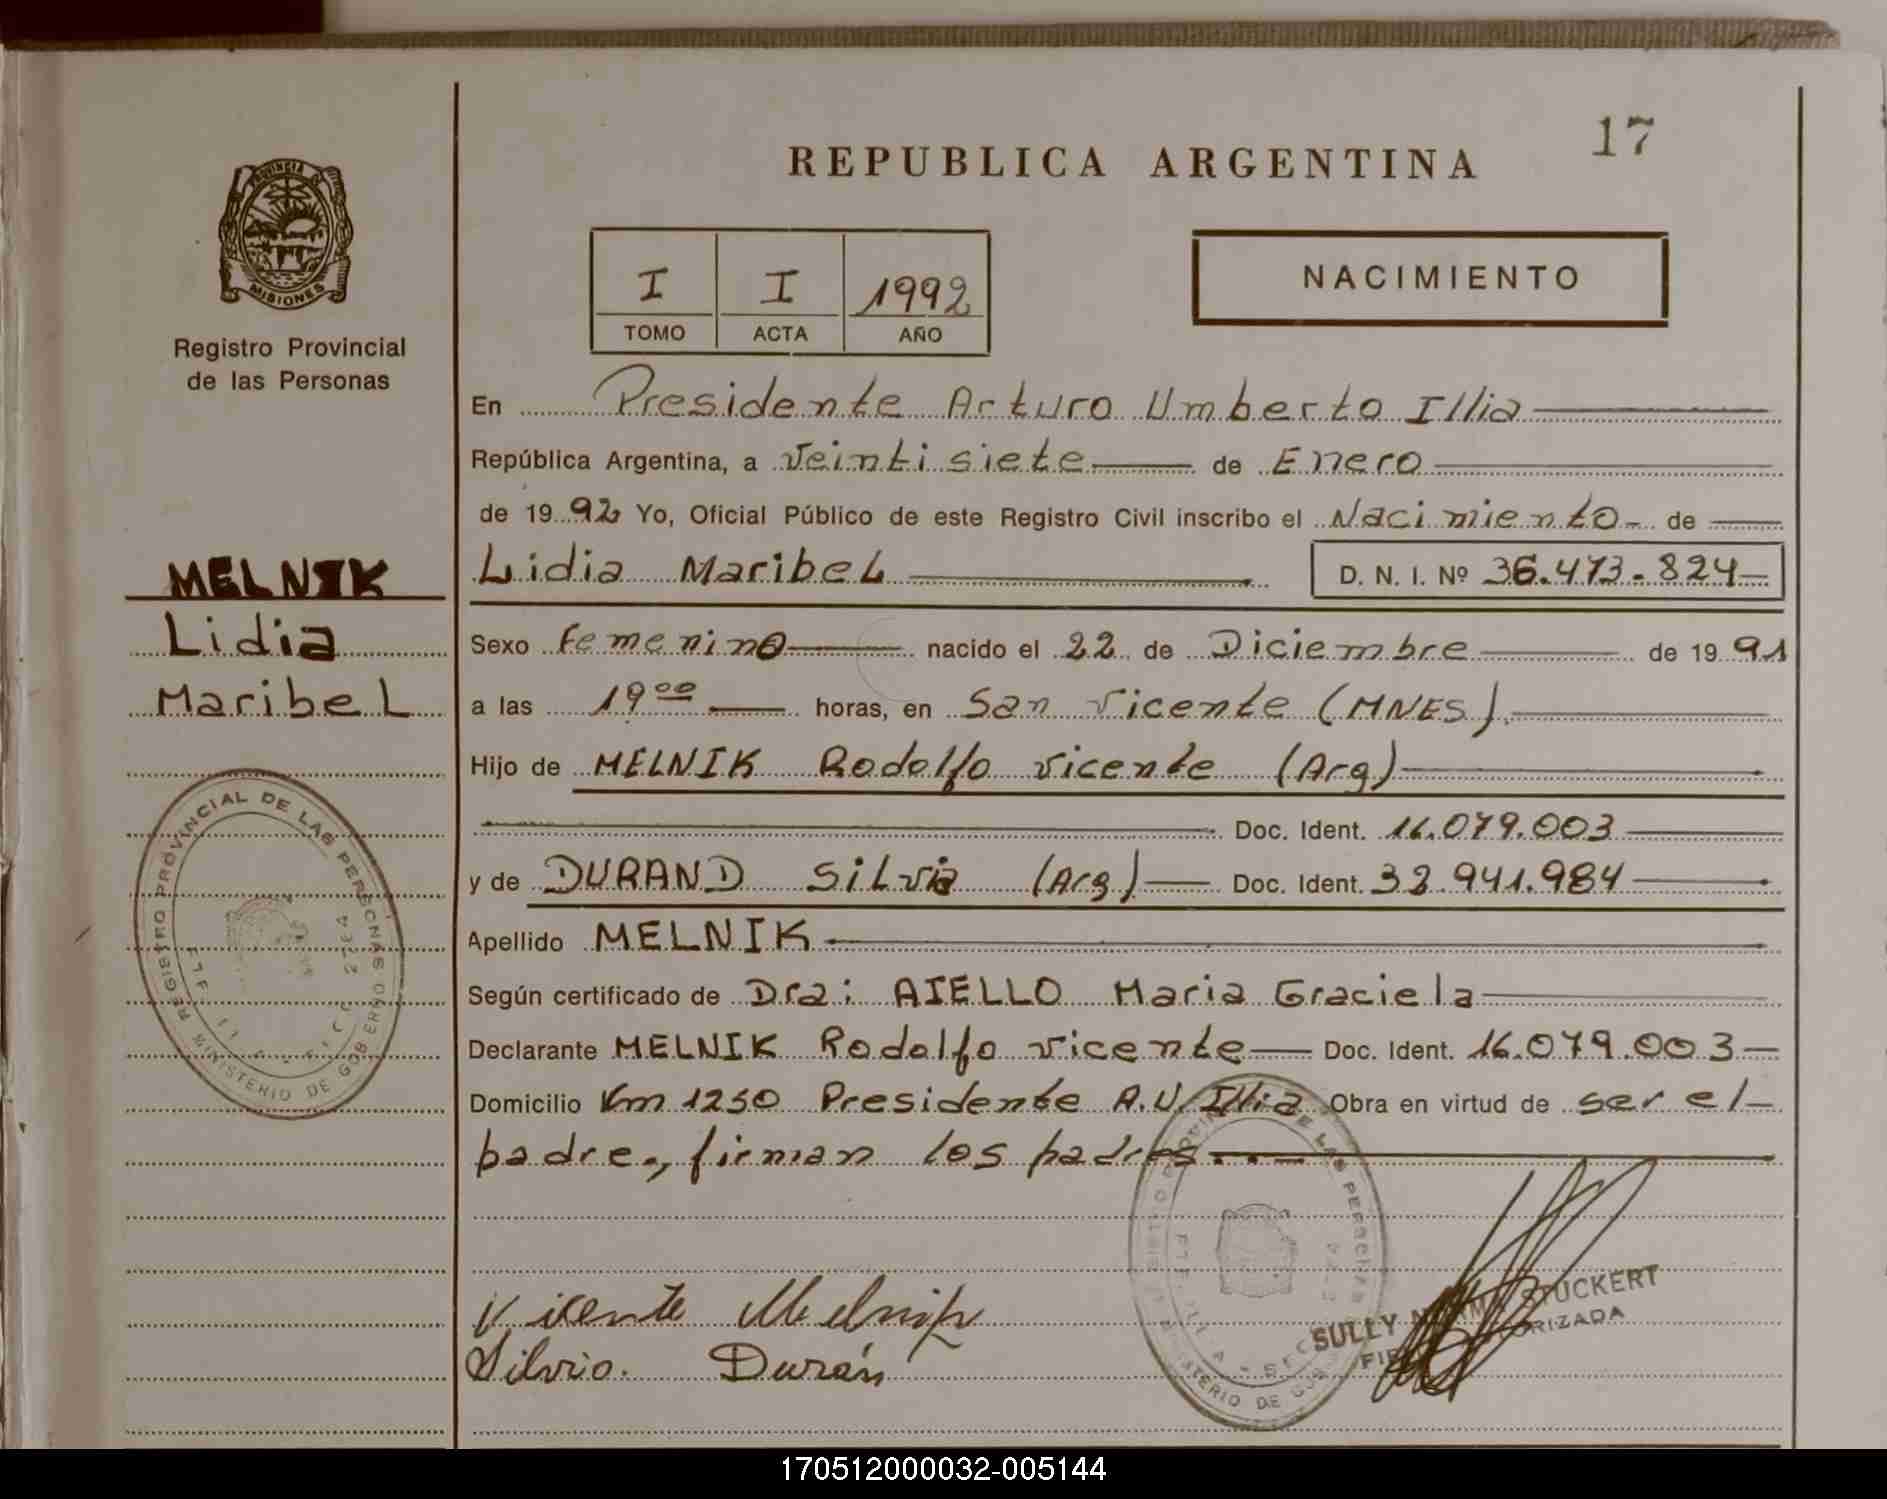 17
REPUBLICA ARGENTINA
PROVINCIA DE
MISIONES
Registro Provincial
de las Personas
I I 1992
TOMO ACTA AÑO
NACIMIENTO
En Presidente Arturo Umberto Illia
República Argentina, a Veintisiete de Enero
de 1992 Yo, Oficial Público de este Registro Civil inscribo el Nacimiento de
Lidia Maribel D. N. I. Nº 36.473.824
MELNIK
Lidia
Maribel
Sexo femenino nacido el 22 de Diciembre de 1991
a las 19 00 horas, en San Vicente (MNES).
Hijo de MELNIK Rodolfo Vicente (Arg)
Doc. Ident. 16.079.003
y de DURAND Silvia (Arg) Doc. Ident. 32.941.984
Apellido MELNIK
Según certificado de Dra: AIELLO Maria Graciela
Declarante MELNIK Rodolfo Vicente Doc. Ident. 16.079.003
Domicilio Km 1250 Presidente A.U. Illia Obra en virtud de ser el
padre, firman los padres
REGISTRO PROVINCIAL DE LAS PERSONAS
MINISTERIO DE GOBIERNO
Vicente Melnik
Silvio. Durán
SULLY NORMA STUCKERT
FIRMA AUTORIZADA
170512000032-005144